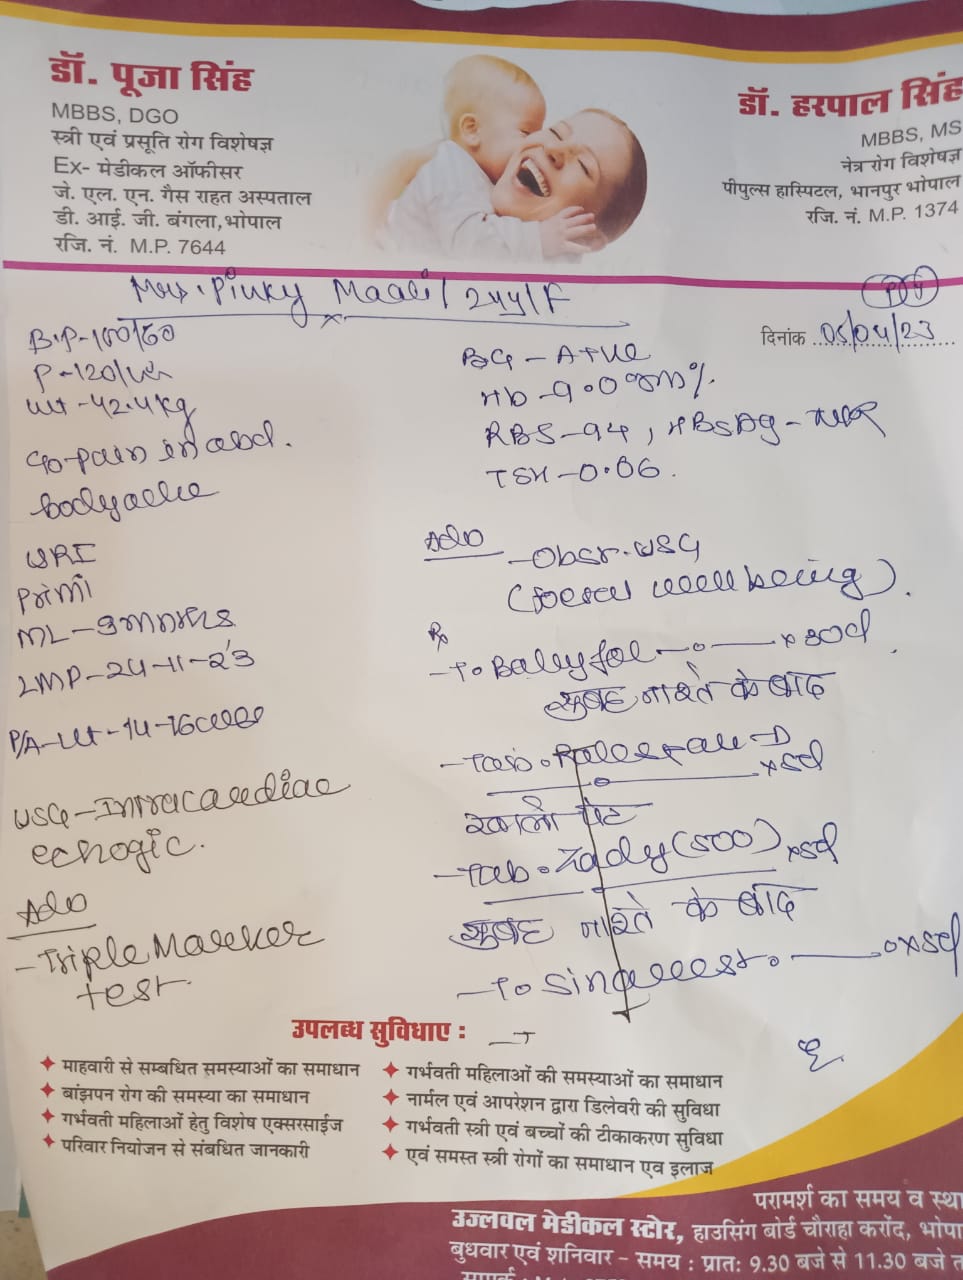 डॉ. पूजा सिंह
MBBS, DGO
स्त्री एवं प्रसूति रोग विशेषज्ञ
Ex- मेडीकल ऑफीसर
जे. एल. एन. गैस राहत अस्पताल
डी. आई. जी. बंगला, भोपाल
रजि. नं. M.P. 7644
डॉ. हरपाल सिंह
MBBS, MS
नेत्र रोग विशेषज्ञ
पीपुल्स हास्पिटल, भानपुर भोपाल
रजि. नं. M.P. 1374
Mrs. Pinky Maali / 24y / F
दिनांक 05/04/23
B.P-100/60
P-120/
wt-42.4kg
c/o-pain in abd.
bodyache
URI
Primi
ML-3months
LMP-24-11-23
P/A-ut-14-16
USG-Intracardiac
echogic.
Adv
-Triple Marker
test.
BG-A+ve
Hb-9.0gm%
RBS-94, HBSAg-NR
TSH-0.06.
Adv
-Obsr. USG
(foetal wellbeing).
Rx
-T. x 30d
सुबह नाश्ते के बाद
-Tab. -D
x5d
खाली पेट
-Tab. Zady (500) x5d
सुबह नाश्ते के बाद
-T. x5d
उपलब्ध सुविधाए :
माहवारी से सम्बधित समस्याओं का समाधान
बांझपन रोग की समस्या का समाधान
गर्भवती महिलाओं हेतु विशेष एक्सरसाईज
परिवार नियोजन से संबधित जानकारी
गर्भवती महिलाओं की समस्याओं का समाधान
नार्मल एवं आपरेशन द्वारा डिलेवरी की सुविधा
गर्भवती स्त्री एवं बच्चों की टीकाकरण सुविधा
एवं समस्त स्त्री रोगों का समाधान एव इलाज
परामर्श का समय व
उज्जवल मेडीकल स्टोर, हाउसिंग बोर्ड चौराहा करोंद,
बुधवार एवं शनिवार - समय : प्रात: 9.30 बजे से 11.30 बजे